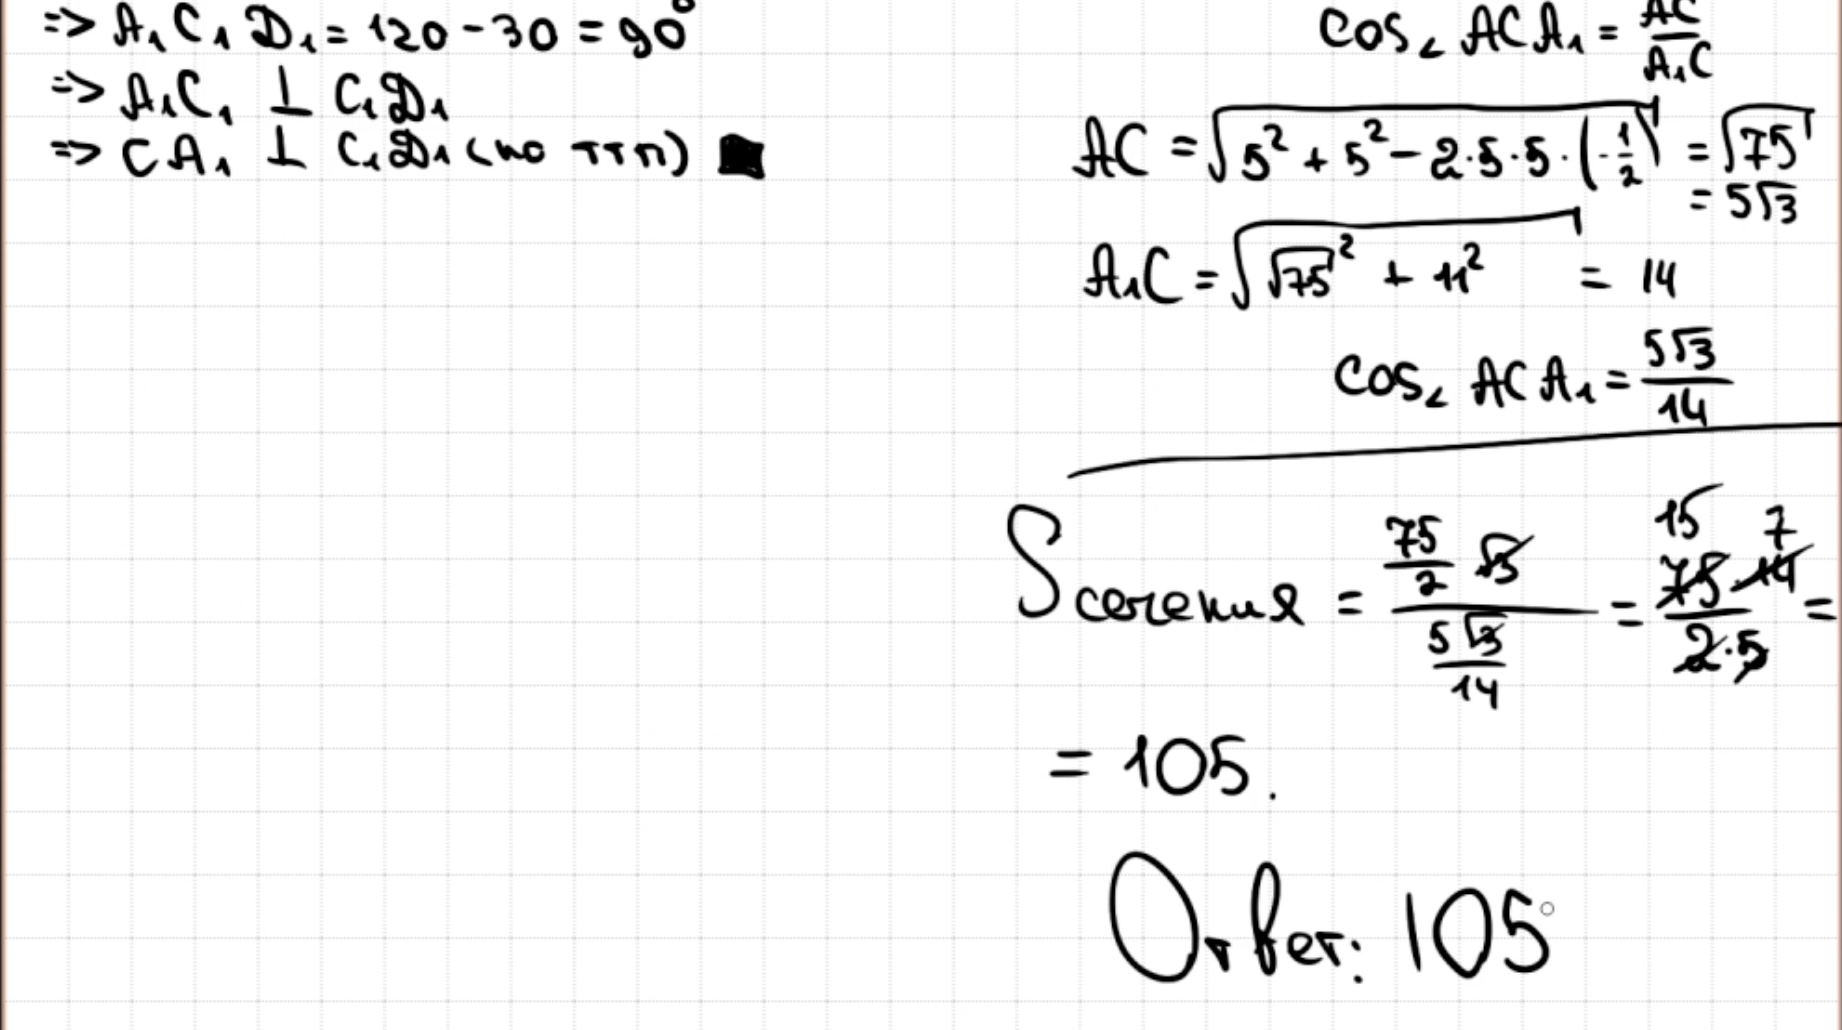 => A₁C₁D₁ = 120 - 30 = 90°
=> A₁C₁ ⊥ C₁D₁
=> CA₁ ⊥ C₁D₁ (по ттп) ■
cos∠ ACA₁ = AC/A₁C
AC = √(5² + 5² - 2·5·5·(-1/2)) = √75
= 5√3
A₁C = √(√75² + 11²) = 14
cos∠ ACA₁ = 5√3/14
Sсечения = (75/2 √3)/(5√3/14) = (15 7 75·14)/(2·5) =
= 105.
Ответ: 105